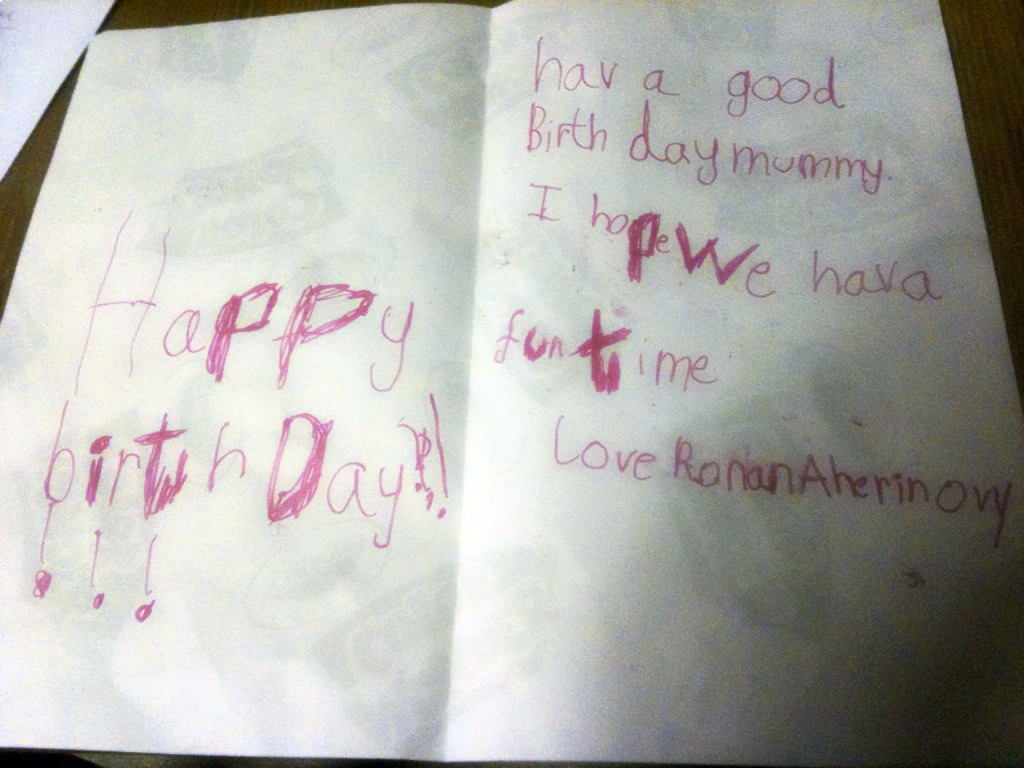 Happy
birth Day!!!
! ! !
hav a good
Birth day mummy.
I hope We hav a
fun time
Love Ronan Aherinovy